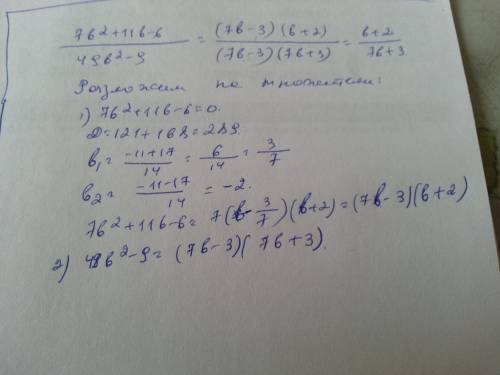 (7b²+11b-6)/(49b²-9) = ((7b-3)(b+2))/((7b-3)(7b+3)) = (b+2)/(7b+3)
Разложим на множители:
1) 7b²+11b-6=0.
D=121+168=289.
b₁= (-11+17)/14 = 6/14 = 3/7
b₂= (-11-17)/14 = -2.
7b²+11b-6= 7(b-3/7)(b+2)=(7b-3)(b+2)
2) 49b²-9= (7b-3)(7b+3).